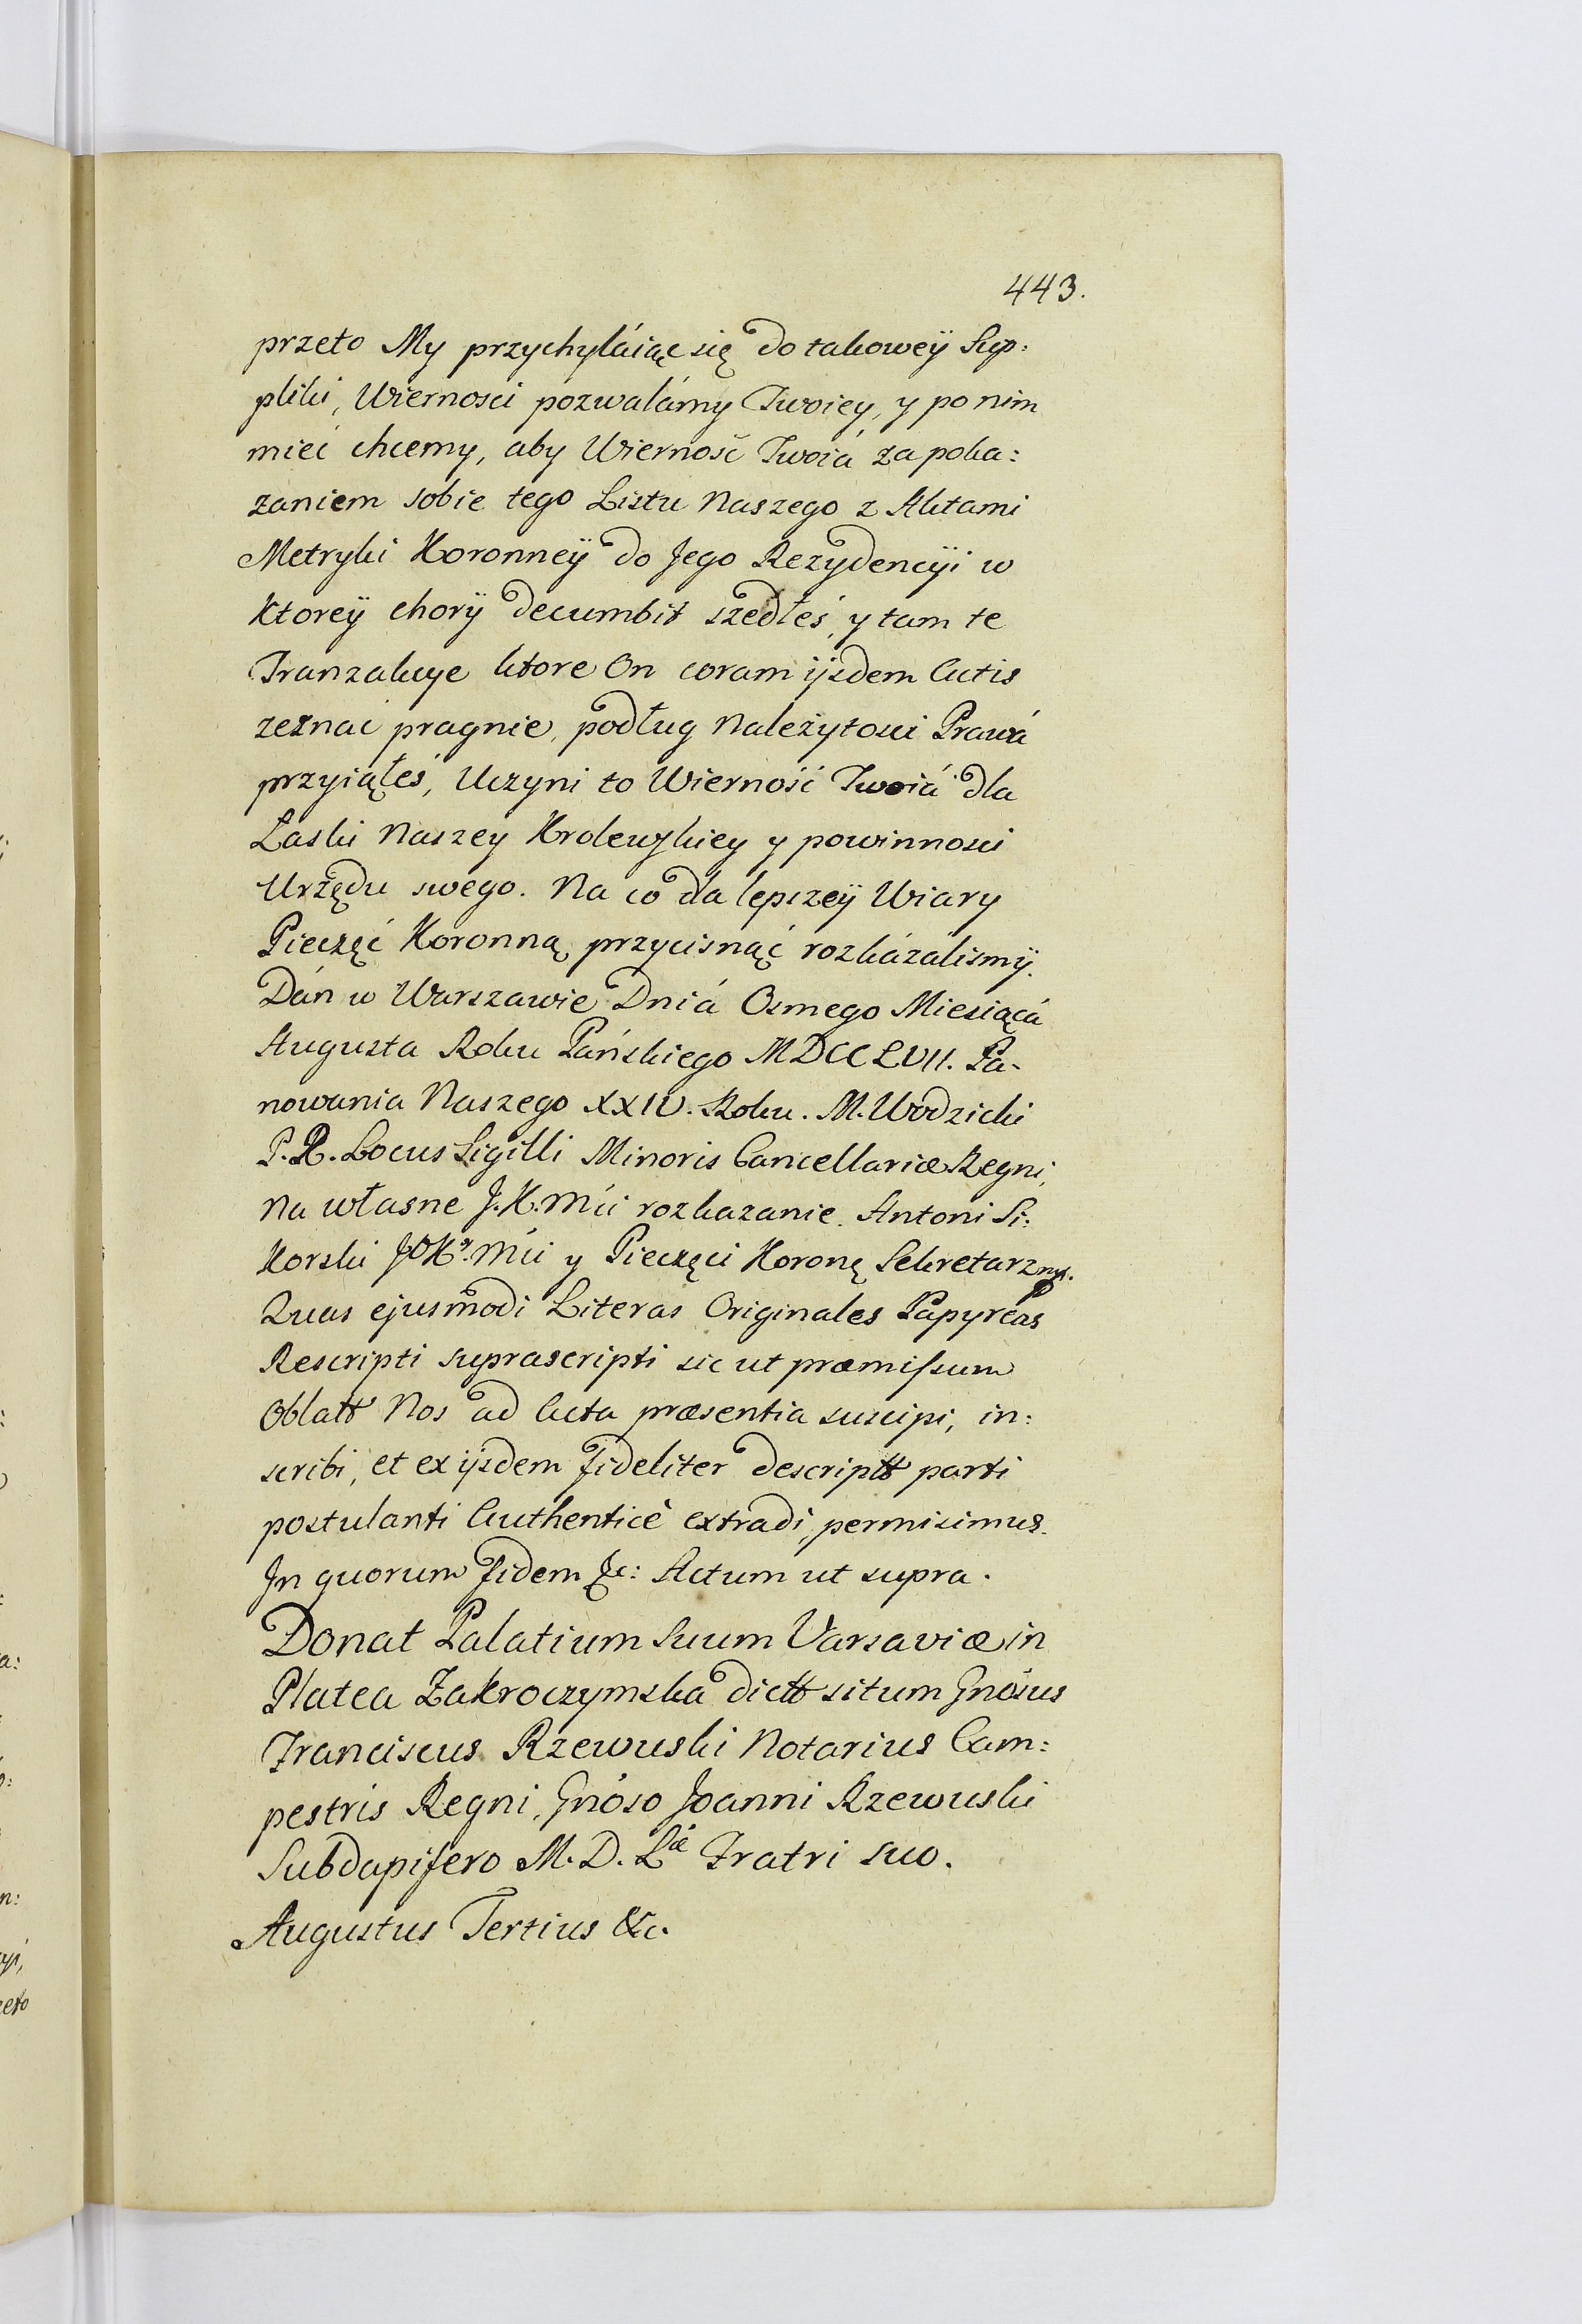 443.
przeto My przychyláiąc się do takoweÿ Sup:
pliki, Wiernosci pozwalámy Twoiey, y po nim
mieć chcemy, aby Wierność Twoiá za poka:
zaniem sobie tego Listu Naszego z Aktami
Metryki Koronneÿ do Jego Rezydencÿi w
Ktoreÿ chorÿ decumbit szedłeś, y tam te
Tranzakcye ktore On coram ijsdem Actis
zeznać pragnie, podług Należytości Prawá
przyiąłeś, Uczyni to Wierność Twoiá dla
Łaski Naszey Krolewskiey y powinnosci
Urzędu swego. Na co dla lepszeÿ Wiary
Pieczęć Koronną przycisnąć rozkázálismÿ.
Dán w Warszawie Dniá Osmego Miesiącá
Augusta Roku Pańskiego MDCCLVII. Pa-
nowania Naszego XXIV. Roku. M. Wodzicki
P. R. Locus Sigilli Minoris Cancellariæ Regni,
Na własne J. K. Mći rozkazanie. Antoni Si:
Korski JOKr. Mći y Pieczęci Koronę Sekretarz mp.
Quas ejusmodi Literas Originales Papyreas
Rescripti suprascripti sic ut præmissum
Oblatt Nos ad Acta præsentia suscipi, in:
scribi, et ex ijsdem fideliter descriptt parti
postulanti Authenticè extradi, permisimus.
Jn quorum fidem &c: Actum ut supra.
Donat Palatium Suum Varsaviæ in
Platea Zakroczymska dictt situm Gnósus
Franciscus Rzewuski Notarius Cam:
pestris Regni, Gnóso Joanni Rzewuski
Subdapifero M. D. Læ Fratri suo.
Augustus Tertius &c.